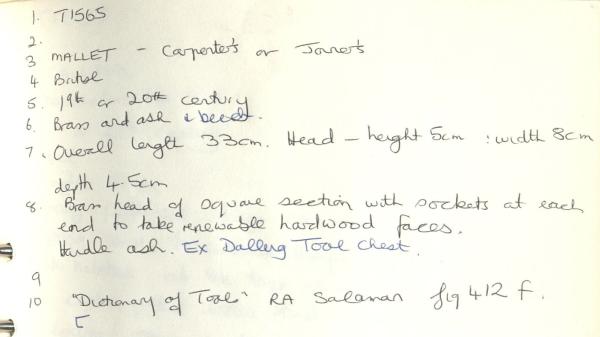 1. T1565
2.
3 MALLET - Carpenter's or Joiner's
4 British
5. 19th or 20th century
6. Brass and ash & beech.
7. Overall length 33cm. Head - height 5cm : width 8cm
depth 4.5cm
8. Brass head of square section with sockets at each
end to take renewable hardwood faces.
Handle ash. Ex Tool Chest.
9
10 "Dictionary of Tools" RA Salaman fig 412 f.